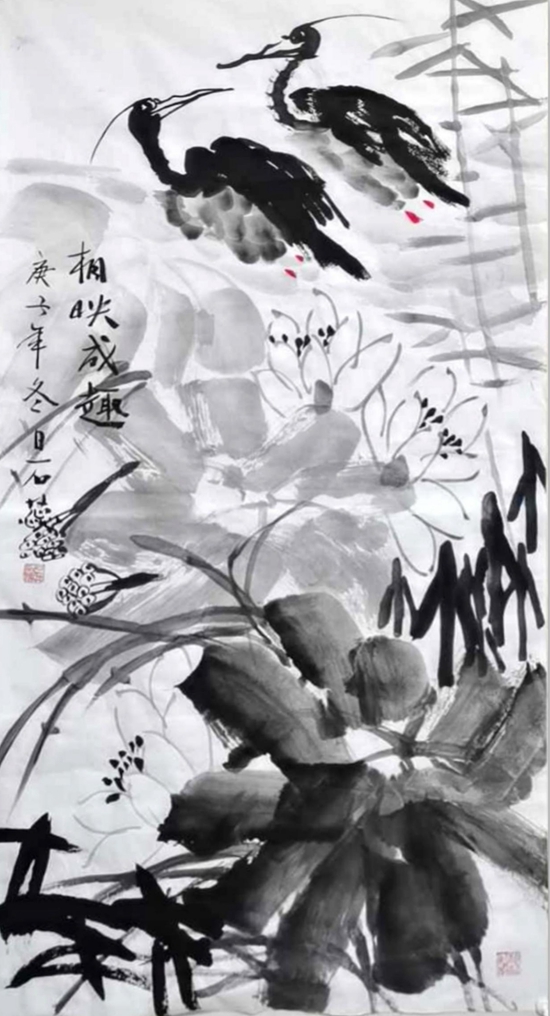 相映成趣
庚子年冬月石